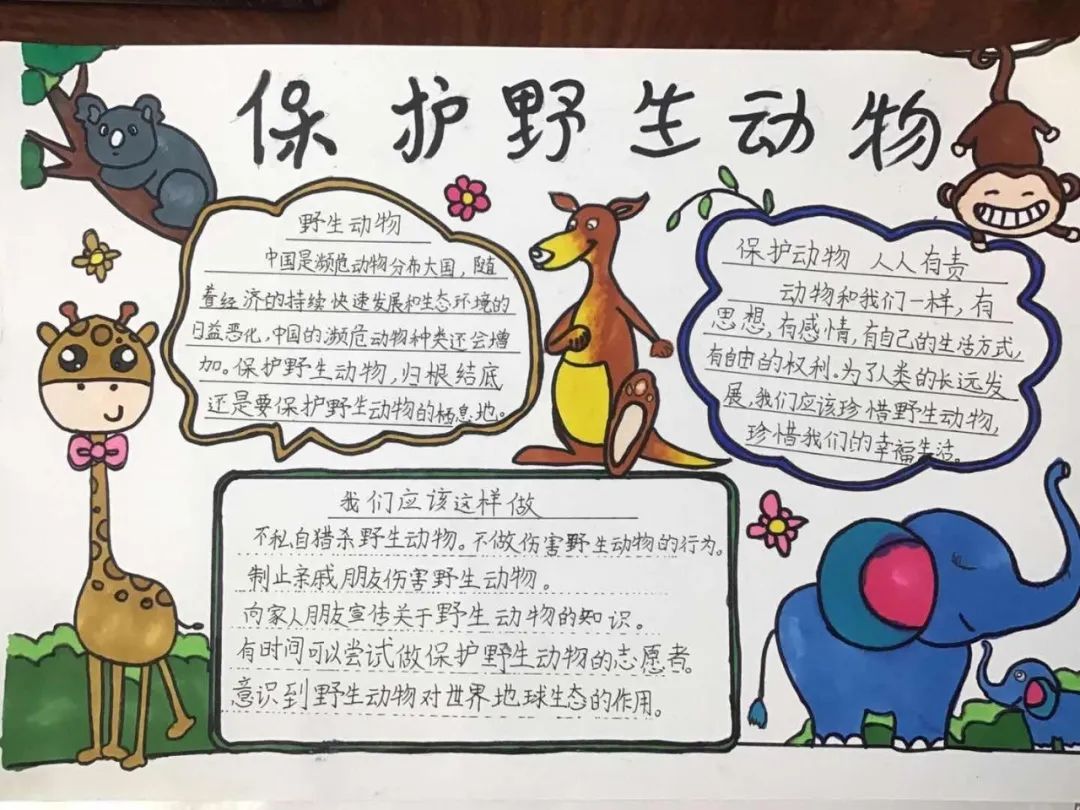 保护野生动物
野生动物
中国是濒危动物分布大国，随
着经济的持续快速发展和生态环境的
日益恶化，中国的濒危动物种类还会增
加。保护野生动物，归根结底
还是要保护野生动物的栖息地。
保护动物 人人有责
动物和我们一样，有
思想，有感情，有自己的生活方式，
有自由的权利。为了人类的长远发
展，我们应该珍惜野生动物，
珍惜我们的幸福生活。
我们应该这样做
不私自猎杀野生动物。不做伤害野生动物的行为。
制止亲戚朋友伤害野生动物。
向家人朋友宣传关于野生动物的知识。
有时间可以尝试做保护野生动物的志愿者。
意识到野生动物对世界地球生态的作用。